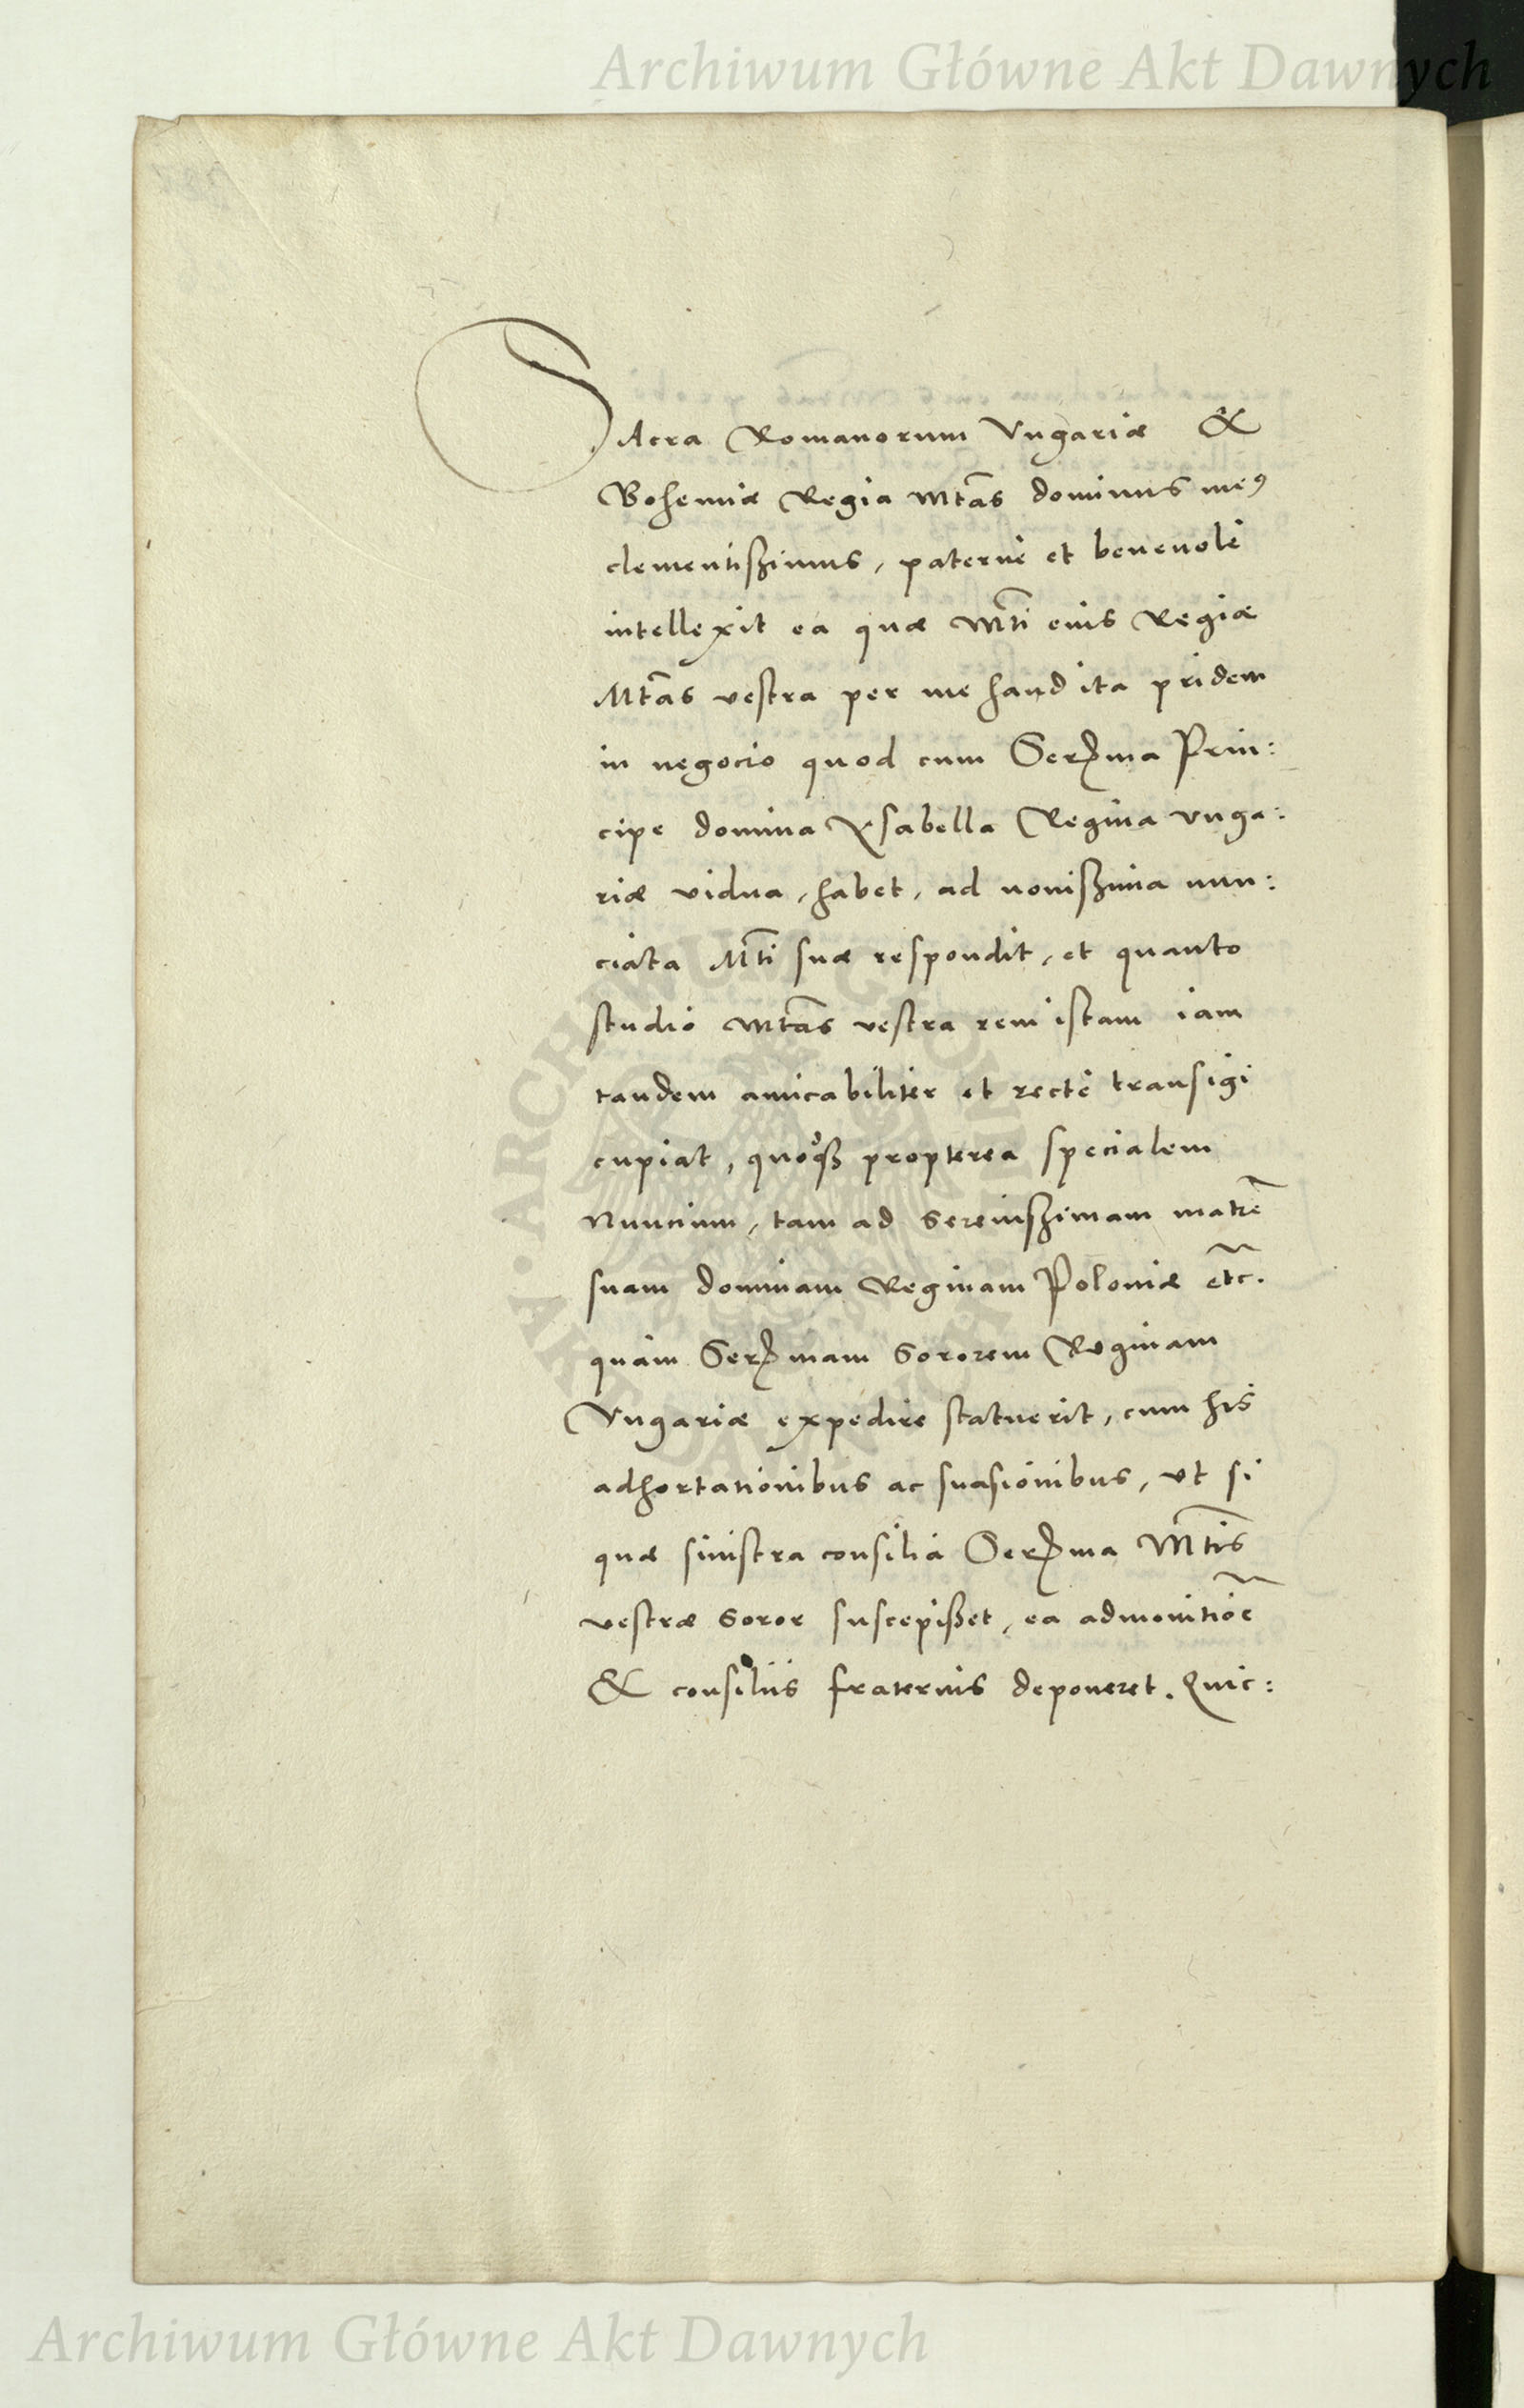 Archiwum Główne Akt Dawnych
SAcra Romanorum Vngariæ &
Bohemiæ Regia Mtas dominus meꝰ
clementißimus, paternè et beneuolè
intellexit ea quæ Mti eius Regiæ
Mtas vestra per me haud ita pridem
in negocio quod cum Serma Prin:
cipe domina Ysabella Regina vnga:
riæ vidua, habet, ad nouißima nun:
ciata Mti suæ respondit, et quanto
studio Mtas vestra rem istam iam
tandem amicabiliter et rectè transigi
cupiat, propterea specialem
Nuncium, tam ad serenißimam matrē
suam dominam Reginam Poloniæ etc.
quàm Sermam Sororem Reginam
Vngariæ expedire statuerit, cum his
adhortationibus ac suasionibus, vt si
quæ sinistra consilia Serma Mtis
vestræ soror suscepißet, ea admonitiōe
& consiliis fraternis deponeret. Quic:
ARCHIWUM GŁÓWNE · AKT DAWNYCH ·
Archiwum Główne Akt Dawnych